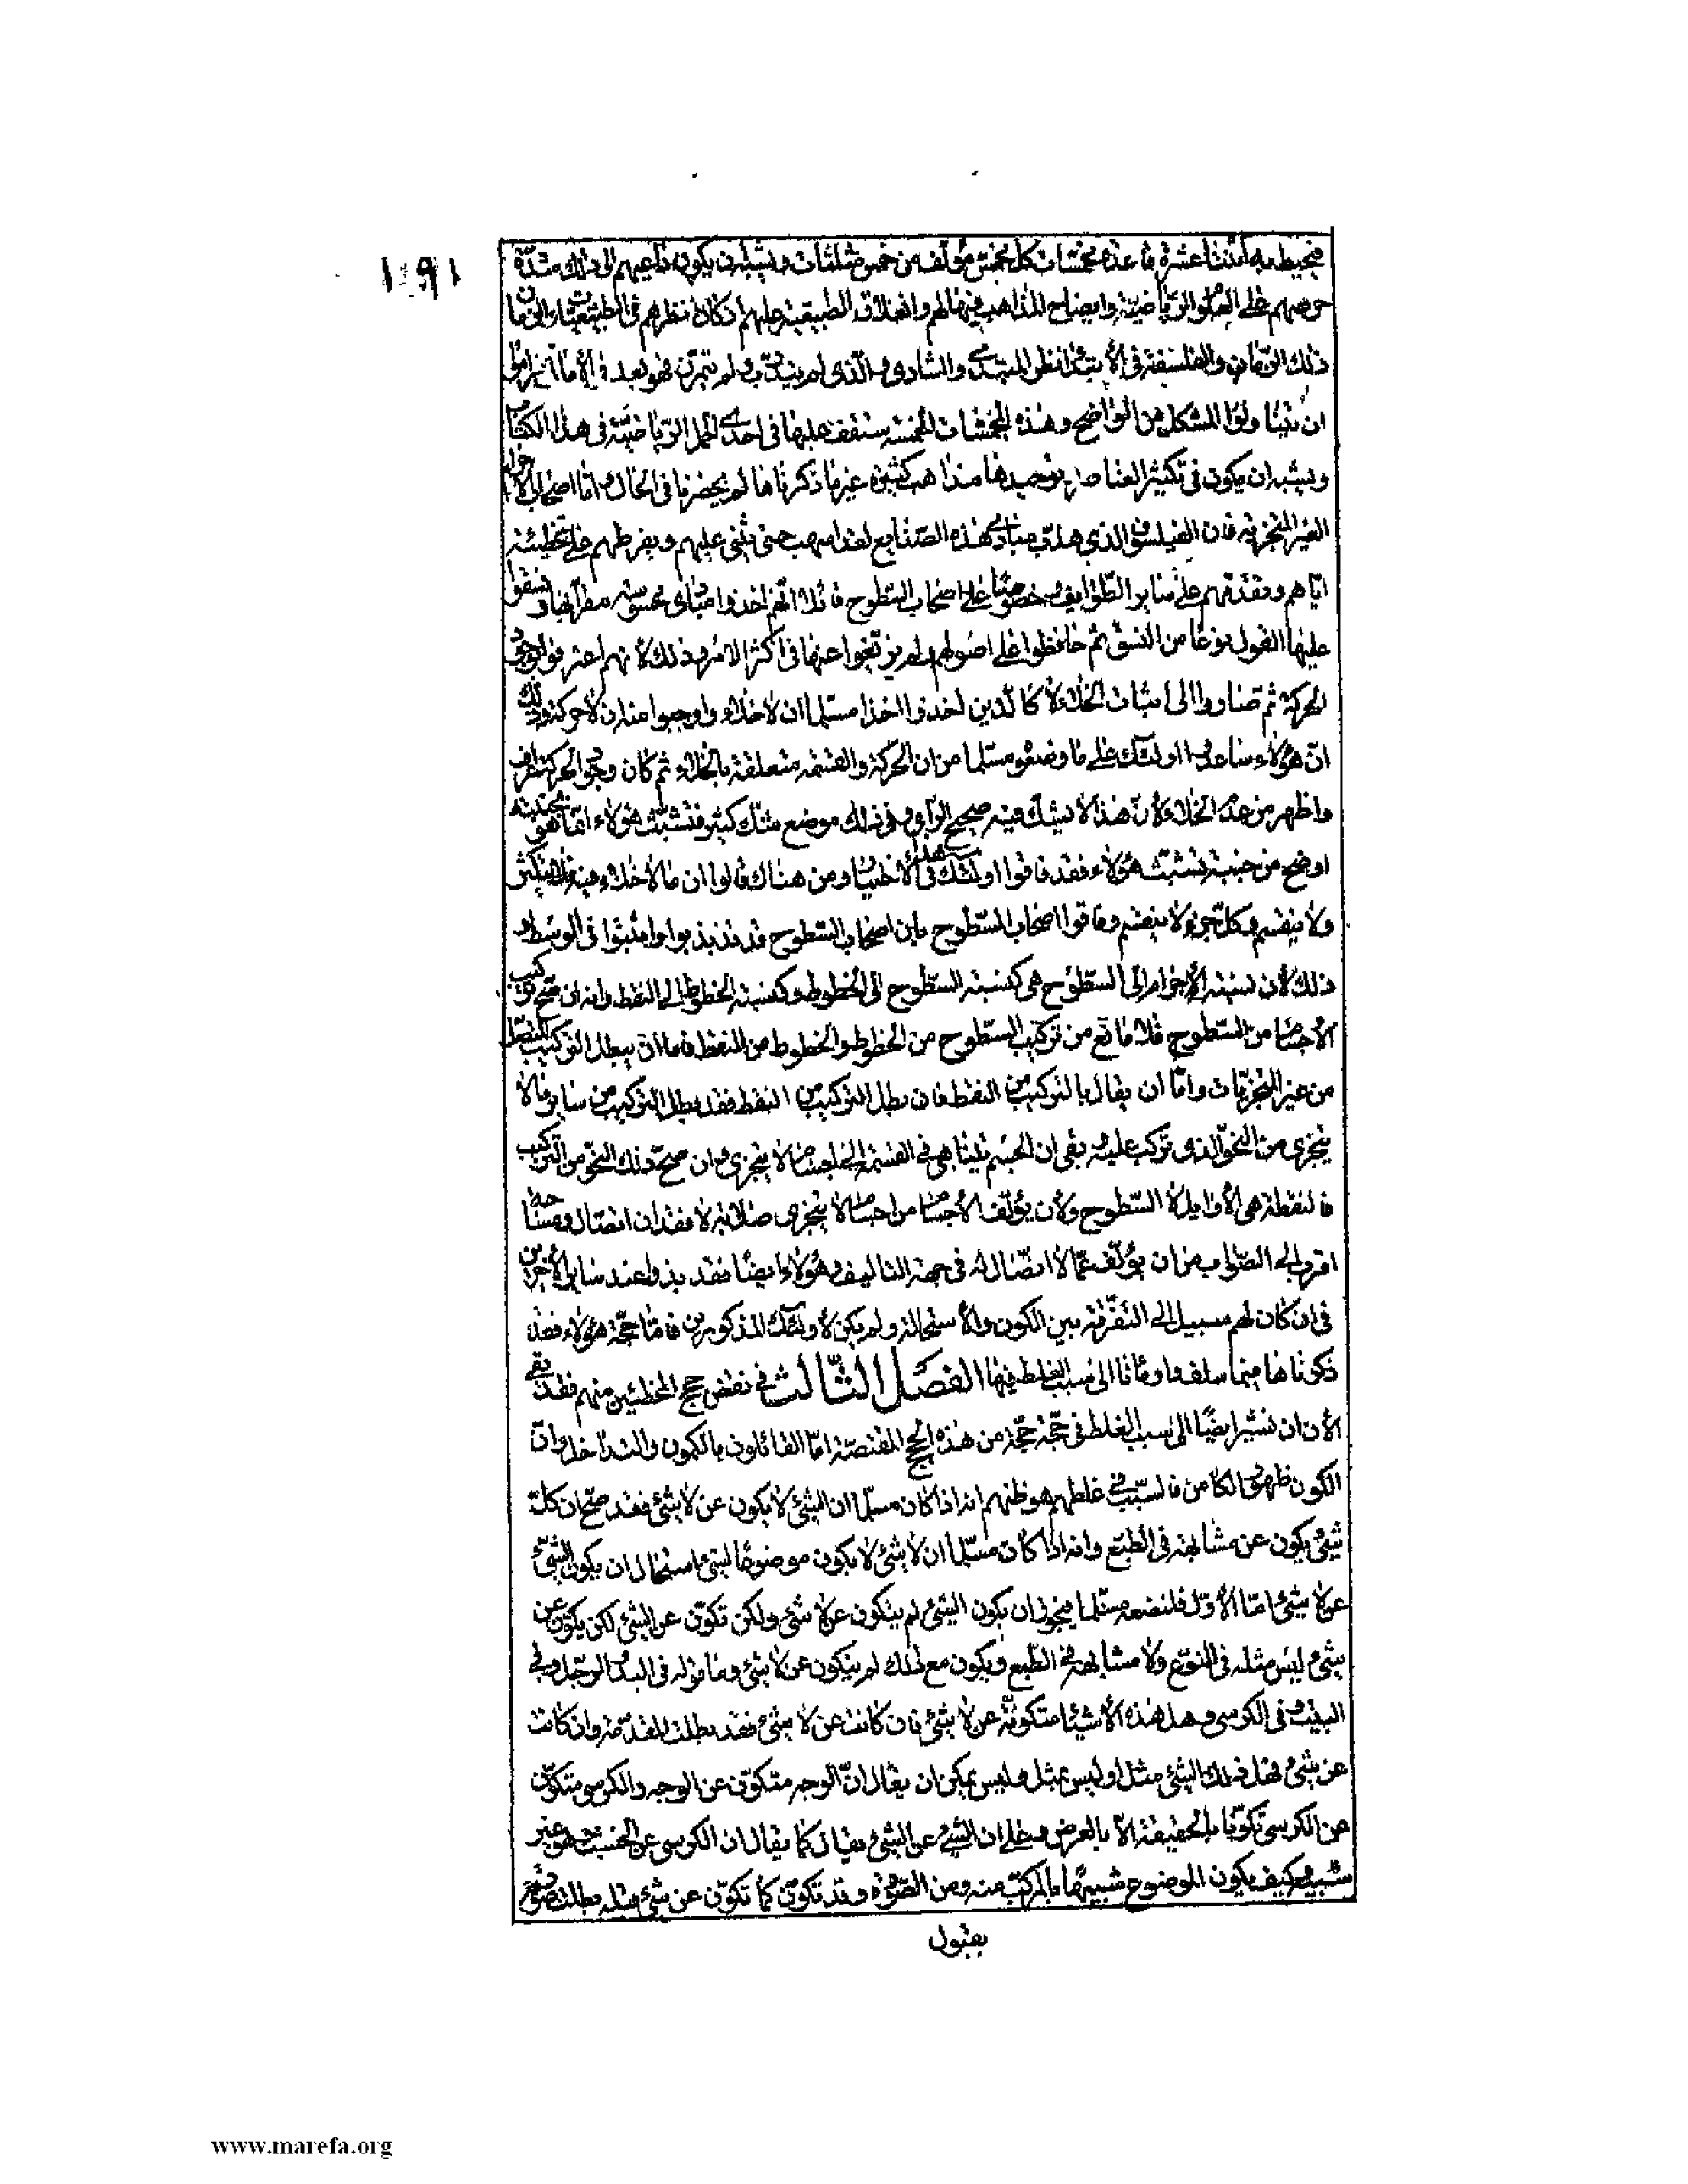 ١٩١
فيحيط به اثنتا عشرة قاعدة مخمسات كل مخمس مؤلف من خمس مثلثات ويشبه ان يكون داعيهم الى ذلك شدة
حرصهم على العلوم الرياضية وايضاح المذاهب فيها لهم وانغلاق الطبيعية عليهم اذ كان نظرهم فى الطبيعيات الى زمان
ذلك الزمان والفلسفة فى الابتداء نظر المبتدى والشادى والذى لم يتدرب ولم يتمرن فهو بعد فى
ان يتناولوا المشكل من الواضح وهذه المخمسات الخمسة ستقف عليها فى احدى الجمل الرياضية فى هذا الكتاب
ويشبه ان يكون فى تكثير العناصر وتوحيدها مذاهب كثيرة غير ما ذكرناها لم يحضرنا فى الحال واما اصحاب الاجرام
الغير المتجزية فان الفيلسوف الذى هذب مبادى هذه الصنايع لقد اسهب حتى يثنى عليهم ويفرطهم على تخطئته
اياهم ويقدمهم على ساير الطوايف وخصوصا على اصحاب السطوح قائلا انهم اخذوا مبادى محسوسة مقرا بها ونسقوا
عليها القول نوعا من النسق ثم حافظوا على اصولهم ولم يزيغوا عنها فى اكثر الامر وذلك لانهم اعترفوا بوجود
الحركة ثم صاروا الى اثبات الخلاء لا كالذين اخذوا اخذا مسلما ان لا خلاء واوجبوا منه ان لا حركة وذلك
ان هؤلاء ساعدوا اولئك على ما وضعوه مسلما من ان الحركة والقسمة متعلقة بالخلاء ثم كان وجود الحركة اعرف
واظهر من عدم الخلاء لان هذا لا يشك فيه صحيح الرأى وفى ذلك موضع شك كثير فتشبث هؤلاء انما هو بجنبة
اوضح من جنبة تشبث هؤلاء فقد فاقوا اولئك فى هذا الاختيار ومن هناك قالوا ان ما لا خلاء فيه فلا يتكثر
ولا ينقسم وكل جزء لا ينقسم وفاقوا اصحاب السطوح بان اصحاب السطوح قد تذبذبوا واثبتوا فى الوسط و
ذلك لان نسبة الاجرام الى السطوح هى كنسبة السطوح الى الخطوط وكنسبة الخطوط الى النقط وانه ان صح تركيب
الاجسام من السطوح فلا مانع من تركيب السطوح من الخطوط والخطوط من النقط فاما ان يبطل التركيب للنقط
من غير المتجزيات واما ان يقال بالتركيب من النقط فان بطل التركيب من النقط فقد بطل التركيب من ساير ما لا
يتجزى من النحو الذى تركب عليه وبقى ان الجسم يتناهى فى القسمة الى اجسام لا يتجزى وان صح ذلك النحو من التركيب
فالنقطة هى الاوايل لا السطوح ولان يؤلف الاجسام من اجسام لا يتجزى صلابة لا فقدان اتصال ومساحة
اقرب الى الصواب من ان يؤلف عما لا اتصال له فى جهة التاليف وهؤلاء ايضا فقد بذوا عند ساير الاخرين
فى ان كان لهم سبيل الى التفرقة بين الكون والاستحالة ولم يكن لاولئك المذكورين فاما حجة هؤلاء فقد
ذكرناها فيما سلف واومأنا الى سبب الغلط فيها الفصل الثالث فى نقض حجج المخطئين منهم فقد بقى
الان ان نشير ايضا الى سبب الغلط فى حجة حجة من هذه الحجج المقتصة اما القائلون بالكمون والتداخل وان
الكون ظهور الكامن فالسبب فى غلطهم هو ظنهم انه اذا كان مسلما ان الشئ لا يكون عن لا شئ فقد صح ان كل
شئ يكون عن مشابهه فى الطبع وانه اذا كان مسلما ان لا شئ لا يكون موضوعا لشئ استحال ان يكون الشئ
عن لا شئ اما الاول فلنضعه مسلما فيجوز ان يكون الشئ لم يتكون عن لا شئ ولكن تكون عن الشئ لكن يكون عن
شئ ليس مثله فى النوع ولا مشابهه فى الطبع ويكون مع ذلك لم يتكون عن لا شئ وما قوله فى اليد والرجل وفى
البيت وفى الكرسى وهل هذه الاشياء متكونة عن لا شئ فان كانت عن لا شئ فقد بطلت المقدمة وان كانت
عن شئ فهل ذلك الشئ مثل او ليس بمثل وليس يمكن ان يقال ان الوجه متكون عن الوجه والكرسى متكون
عن الكرسى تكونا بالحقيقة الا بالعرض وعلى ان الشئ عن الشئ يقال كما يقال ان الكرسى عن الخشب وهو غير
شبيه وكيف يكون الموضوع شبيها بالمركب منه ومن الصورة وقد تكون كما تكون عن شئ مثله بطلت صورته
بقبول
www.marefa.org